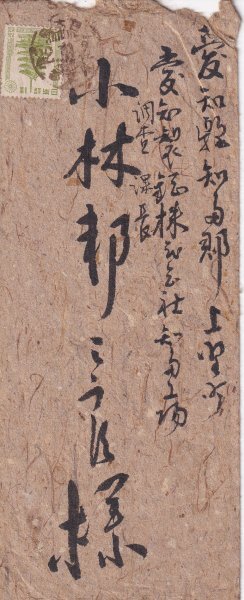 愛知縣知多郡上野町
愛知製鋼株式会社知多工場
調査課長
小林邦三郎様